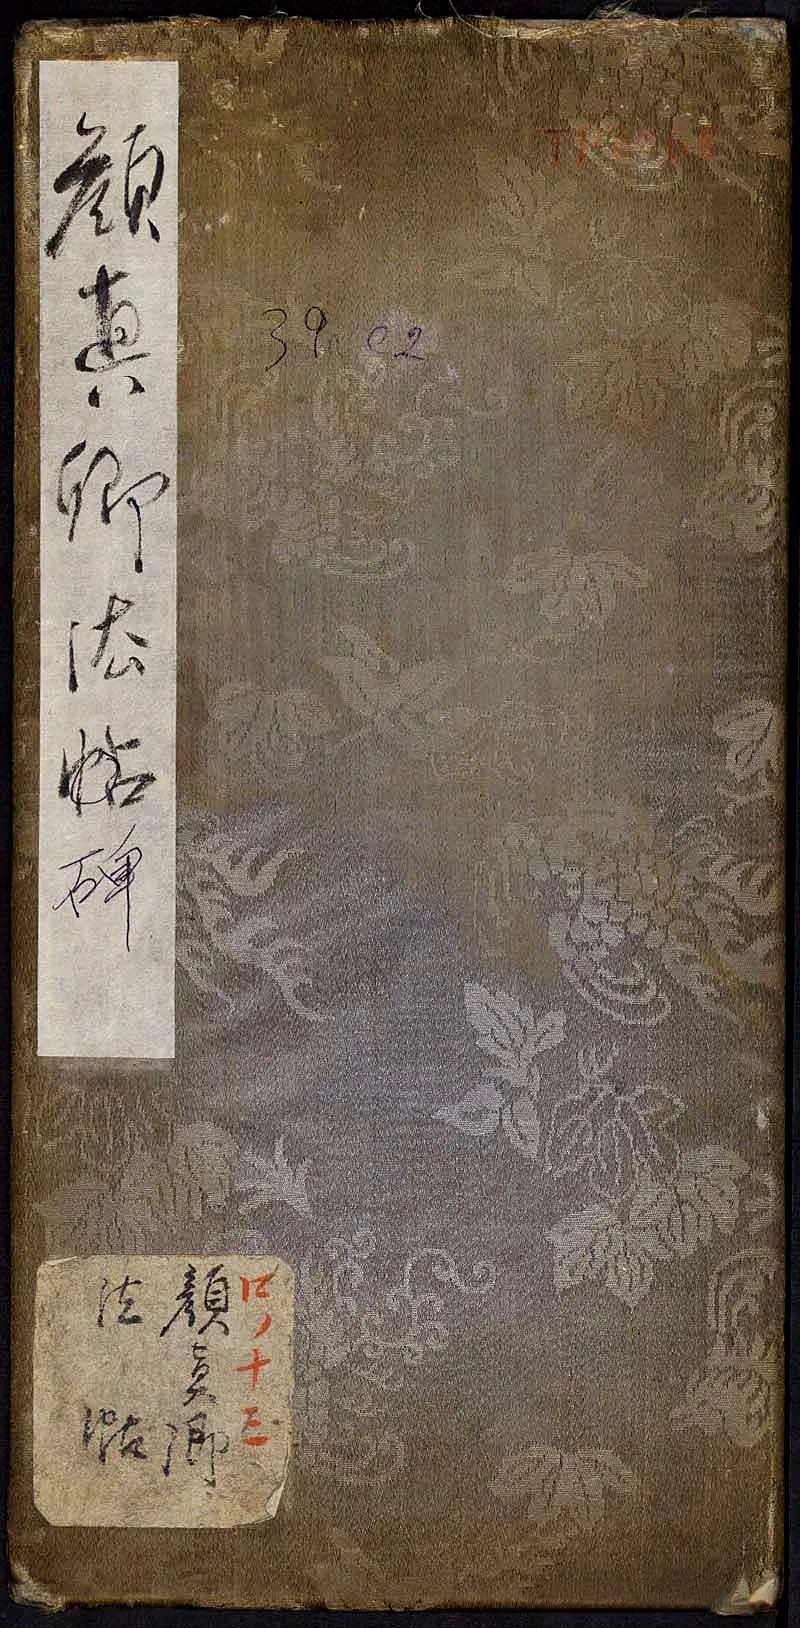 顔真卿法帖碑
39 02
ロノ十三
顔真卿
法帖